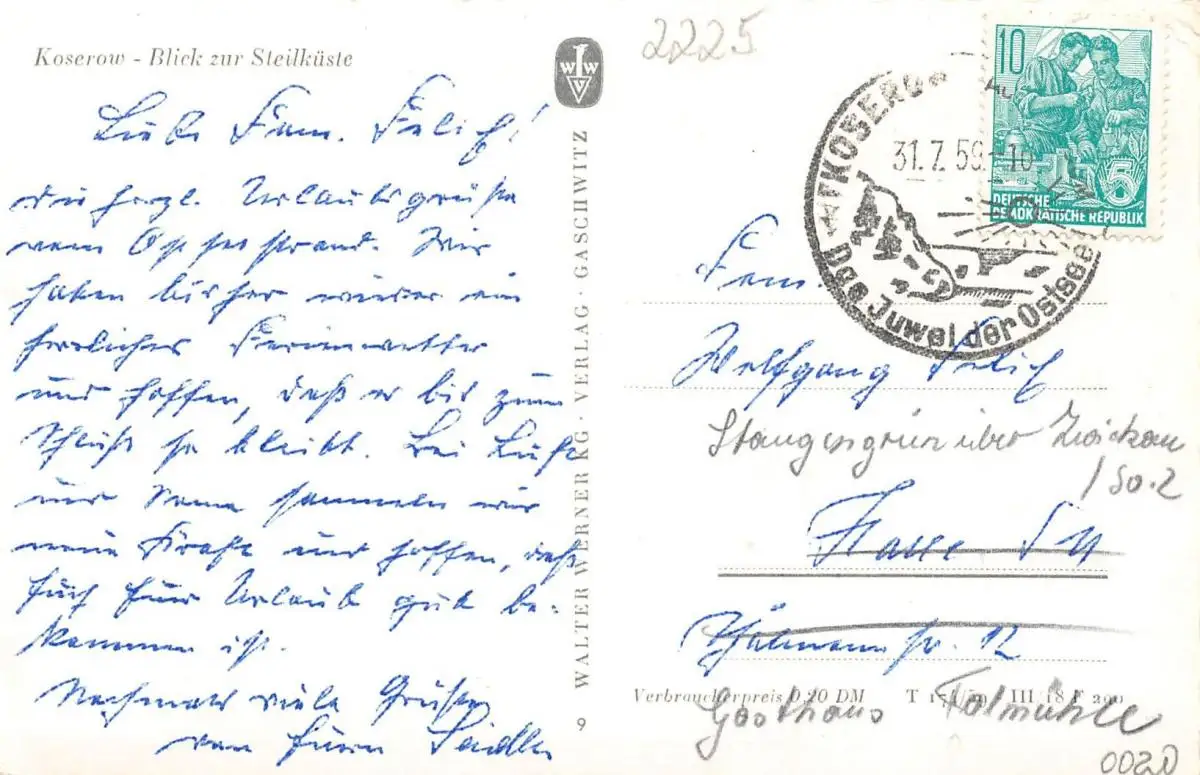 Koserow - Blick zur Steilküste
Liebe Fam. Felich!
die herzl. Urlaubsgrüße
vom Ostseestrand. Wir
haben bisher wieder ein
herrliches Ferienwetter
und hoffen, daß er bis zum
Schluß so bleibt. Bei Luft
und Sonne sammeln wir
neue Kraft und hoffen, daß
Euch Euer Urlaub gut be-
kommen ist.
Nochmals viele Grüße
von Euren
WALTER WERNER KG · VERLAG · GASCHWITZ
9
2225
KOSEROW
31.7.59-10
Das Juwel der Ostsee
10
5
DEUTSCHE
DEMOKRATISCHE REPUBLIK
Fam.
Wolfgang Felich
Stangengrün über Zwickau
/ So. 2
Halle
Thälmannstr. 12
Verbraucherpreis 0,20 DM
III 18 F 200
Gasthaus Talmühle
0020